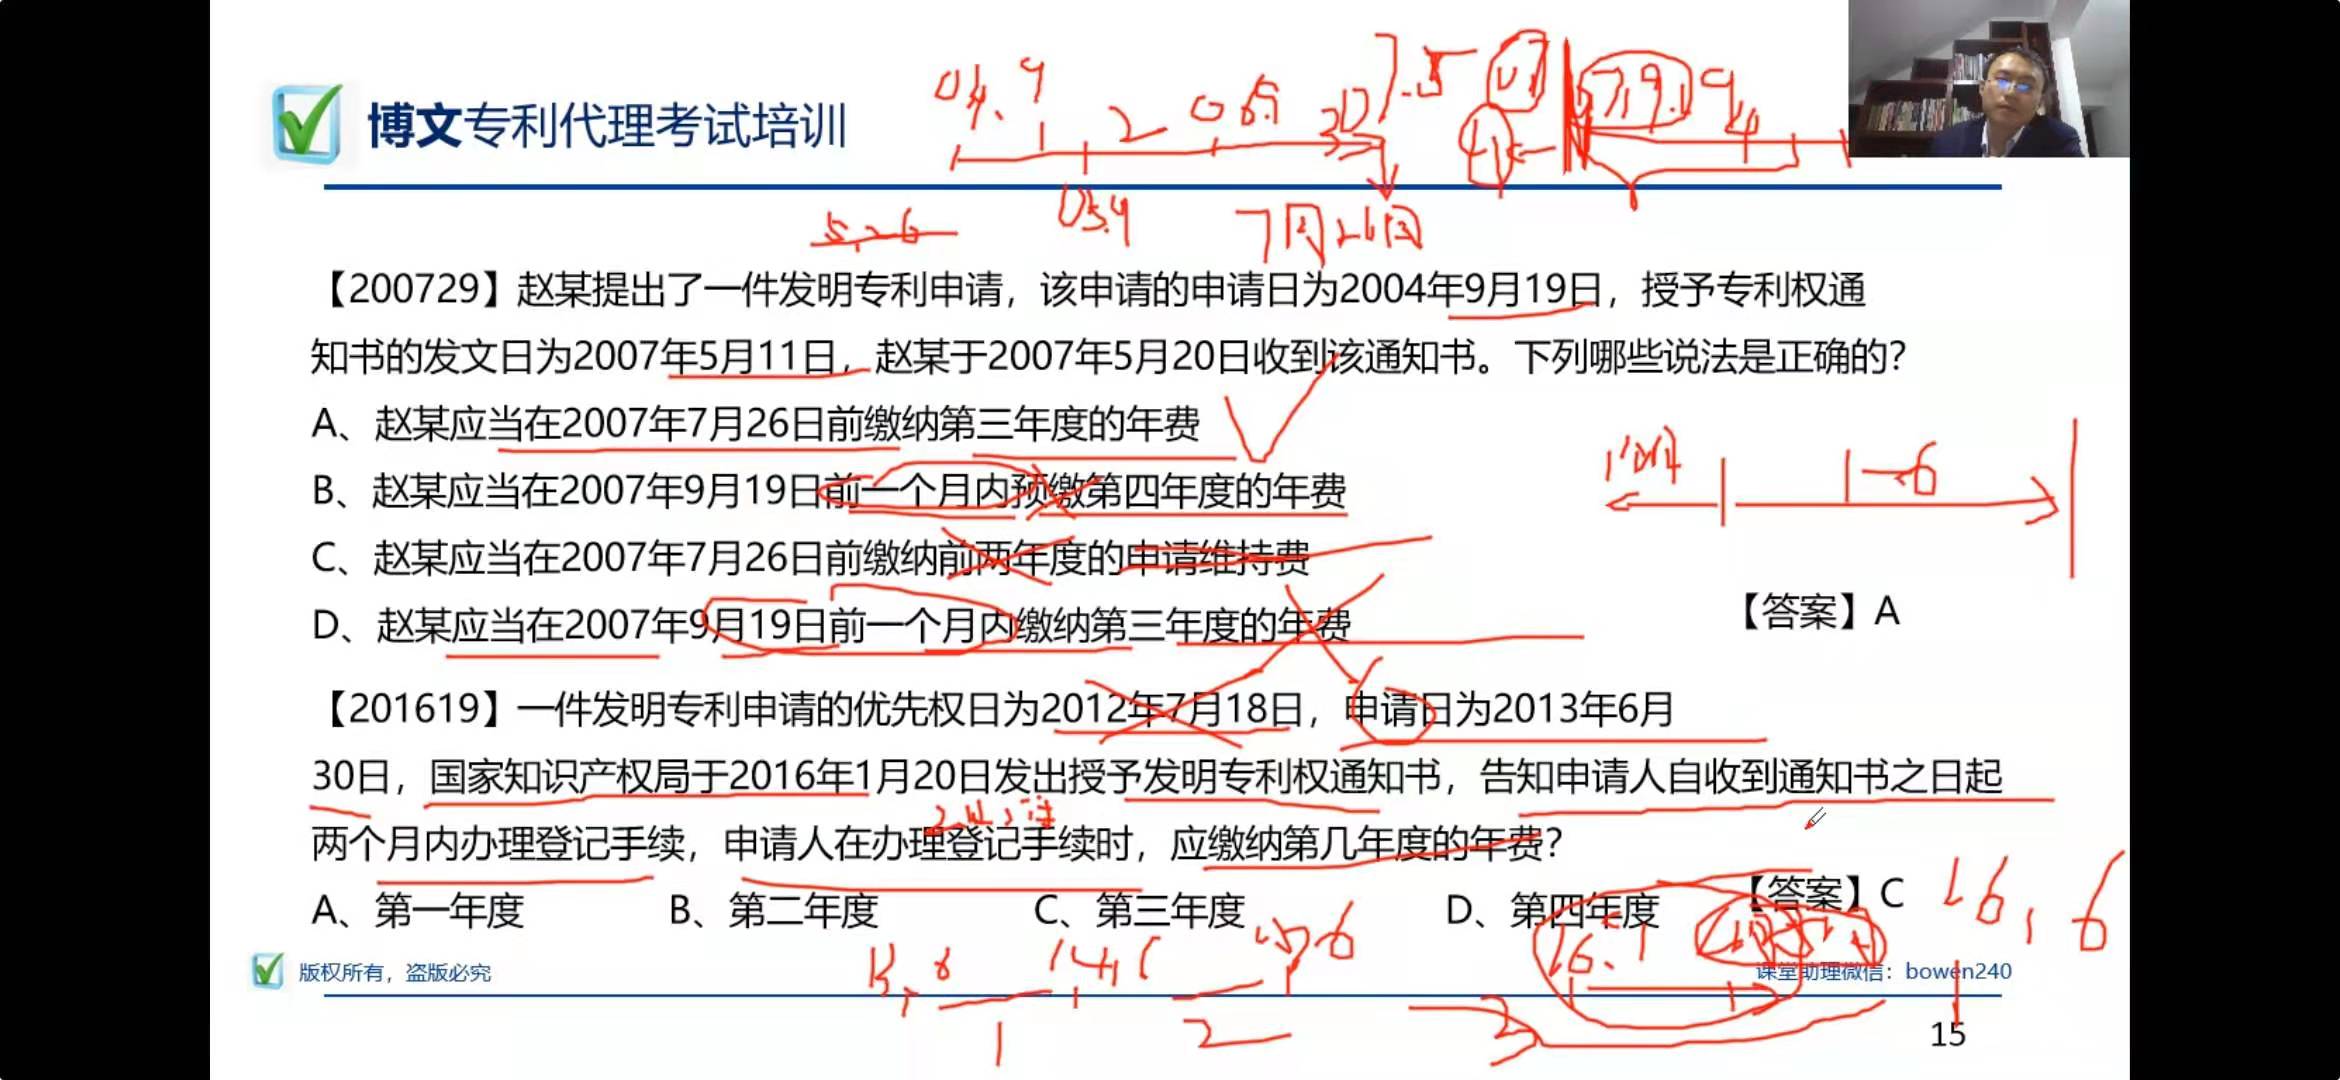 博文专利代理考试培训
04.9
2
7.5
05.9
5.26
7月26日
【200729】赵某提出了一件发明专利申请，该申请的申请日为2004年9月19日，授予专利权通
知书的发文日为2007年5月11日，赵某于2007年5月20日收到该通知书。下列哪些说法是正确的？
A、赵某应当在2007年7月26日前缴纳第三年度的年费
B、赵某应当在2007年9月19日前一个月内预缴第四年度的年费
C、赵某应当在2007年7月26日前缴纳前两年度的申请维持费
D、赵某应当在2007年9月19日前一个月内缴纳第三年度的年费
1个月
1-6
【答案】A
【201619】一件发明专利申请的优先权日为2012年7月18日，申请日为2013年6月
30日，国家知识产权局于2016年1月20日发出授予发明专利权通知书，告知申请人自收到通知书之日起
两个月内办理登记手续，申请人在办理登记手续时，应缴纳第几年度的年费？
A、第一年度 B、第二年度 C、第三年度 D、第四年度
【答案】C
16.6
13.6
14.6
15.6
16.1
版权所有，盗版必究
课堂助理微信：bowen240
1
2
3
15